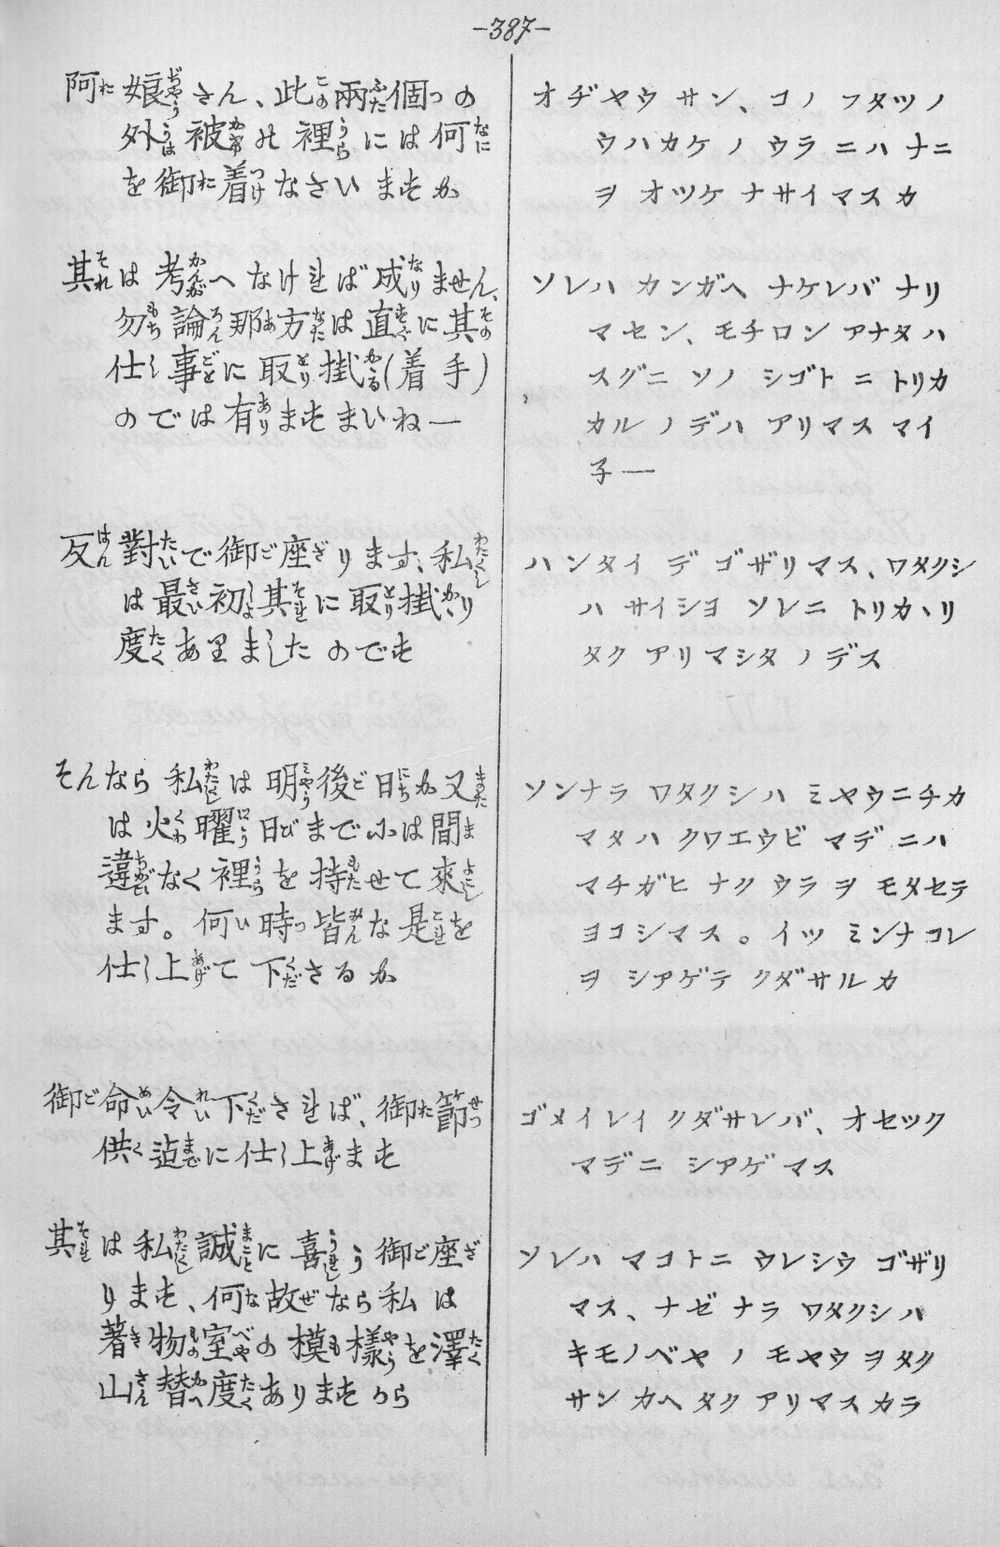 -387-
阿娘さん、此兩個つの
外被の裡には何
を御着なさいますか
其は考へなければ成ません、
勿論那方は直に其
仕事に取掛(着手)
のでは有ますまいねー
反對で御座ります、私
は最初其に取掛り
度ありましたのです
そんなら私は明後日か又
は火曜日までには間
違なく裡を持せて來
ます。何時皆な是を
仕上て下さるか
御命令下されば、御節
供迠に仕上ます
其は私誠に喜う御座
ります、何故なら私は
著物室の模樣を澤
山替度ありますから
オヂヤウサン、コノフタツノ
ウハカケノウラニハナニ
ヲオツケナサイマスカ
ソレハカンガヘナケレバナリ
マセン、モチロンアナタハ
スグニソノシゴトニトリカ
カルノデハアリマスマイ
子ー
ハンタイデゴザリマス、ワタクシ
ハサイシヨソレニトリカヽリ
タクアリマシタノデス
ソンナラワタクシハミヤウニチカ
マタハクワエウビマデニハ
マチガヒナクウラヲモタセテ
ヨコシマス。イツミンナコレ
ヲシアゲテクダサルカ
ゴメイレイクダサレバ、オセツク
マデニシアゲマス
ソレハマコトニウレシウゴザリ
マス、ナゼナラワタクシハ
キモノベヤノモヤウヲタク
サンカヘタクアリマスカラ